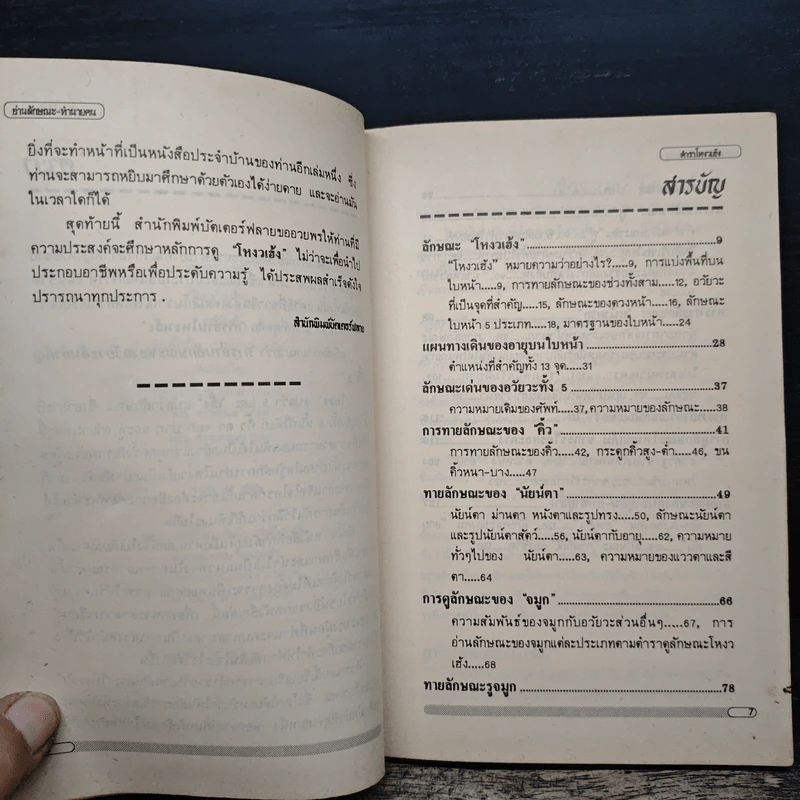 อ่านลักษณะ-ทำนายคน
ยิ่งที่จะทำหน้าที่เป็นหนังสือประจำบ้านของท่านอีกเล่มหนึ่ง ซึ่ง
ท่านจะสามารถหยิบมาศึกษาด้วยตัวเองได้ง่ายดาย และจะอ่านมัน
ในเวลาใดก็ได้
สุดท้ายนี้ สำนักพิมพ์บัตเตอร์ฟลายขออวยพรให้ท่านที่มี
ความประสงค์จะศึกษาหลักการดู "โหงวเฮ้ง" ไม่ว่าจะเพื่อนำไป
ประกอบอาชีพหรือเพื่อประดับความรู้ ได้ประสพผลสำเร็จดังใจ
ปรารถนาทุกประการ .
สำนักพิมพ์บัตเตอร์ฟลาย
ตำราโหงวเฮ้ง
สารบัญ
ลักษณะ "โหงวเฮ้ง"..........9
"โหงวเฮ้ง" หมายความว่าอย่างไร?.....9, การแบ่งพื้นที่บน
ใบหน้า.....9, การทายลักษณะของช่วงทั้งสาม.....12, อวัยวะ
ที่เป็นจุดที่สำคัญ.....15, ลักษณะของดวงหน้า.....16, ลักษณะ
ใบหน้า 5 ประเภท.....18, มาตรฐานของใบหน้า.....24
แผนทางเดินของอายุบนใบหน้า..........28
ตำแหน่งที่สำคัญทั้ง 13 จุด.....31
ลักษณะเด่นของอวัยวะทั้ง 5..........37
ความหมายเดิมของศัพท์.....37, ความหมายของลักษณะ.....38
การทายลักษณะของ "คิ้ว"..........41
การทายลักษณะของคิ้ว.....42, กระดูกคิ้วสูง-ต่ำ.....46, ขน
คิ้วหนา-บาง.....47
ทายลักษณะของ "นัยน์ตา"..........49
นัยน์ตา ม่านตา หนังตาและรูปทรง.....50, ลักษณะนัยน์ตา
และรูปนัยน์ตาสัตว์.....56, นัยน์ตากับอายุ.....62, ความหมาย
ทั่วๆไปของ นัยน์ตา.....63, ความหมายของแววตาและสี
ตา.....64
การดูลักษณะของ "จมูก"..........66
ความสัมพันธ์ของจมูกกับอวัยวะส่วนอื่นๆ.....67, การ
อ่านลักษณะของจมูกแต่ละประเภทตามตำราดูลักษณะโหงว
เฮ้ง.....68
ทายลักษณะรูจมูก..........78
7